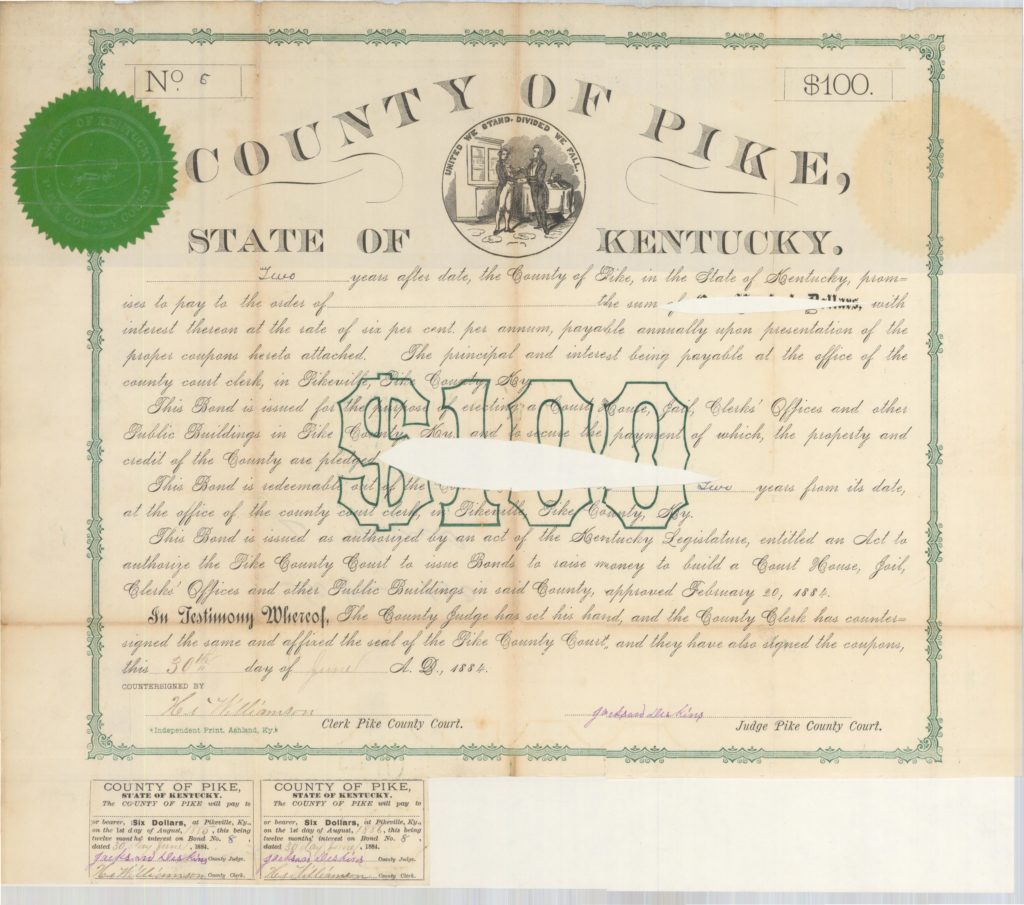 No. 6
$100.
COUNTY OF PIKE,
UNITED WE STAND, DIVIDED WE FALL.
STATE OF KENTUCKY.
STATE OF KENTUCKY
PIKE COUNTY COURT
Two years after date, the County of Pike, in the State of Kentucky, prom=
ises to pay to the order of the sum of Dollars, with
interest thereon at the rate of six per cent. per annum, payable annually upon presentation of the
proper coupons hereto attached. The principal and interest being payable at the office of the
county court clerk, in Pikeville, Pike County Ky
$100
This Bond is issued for the purpose of erecting a Court House, Jail, Clerks' Offices and other
Public Buildings in Pike County, Ky. and to secure the payment of which, the property and
credit of the County are pledged
This Bond is redeemable out of the Two years from its date,
at the office of the county court clerk, in Pikeville, Pike County, Ky.
This Bond is issued as authorized by an act of the Kentucky Legislature, entitled an Act to
authorize the Pike County Court to issue Bonds to raise money to build a Court House, Jail,
Clerks' Offices and other Public Buildings in said County, approved February 20, 1884.
In Testimony Whereof, The County Judge has set his hand, and the County Clerk has counter=
signed the same and affixed the seal of the Pike County Court, and they have also signed the coupons,
this 30th day of June A. D., 1884.
COUNTERSIGNED BY
Williamson
Clerk Pike County Court.
Jackson Deskins
Judge Pike County Court.
Independent Print. Ashland, Ky.
COUNTY OF PIKE,
STATE OF KENTUCKY.
The COUNTY OF PIKE will pay to
or bearer, Six Dollars, at Pikeville, Ky.,
on the 1st day of August, 1885, this being
twelve months' interest on Bond No. 8
dated 30 day June, 1884.
Jackson Deskins County Judge.
Williamson County Clerk.
COUNTY OF PIKE,
STATE OF KENTUCKY.
The COUNTY OF PIKE will pay to
or bearer, Six Dollars, at Pikeville, Ky.,
on the 1st day of August, 1886, this being
twelve months' interest on Bond No. 8
dated 30 day June, 1884.
Jackson Deskins County Judge.
Williamson County Clerk.